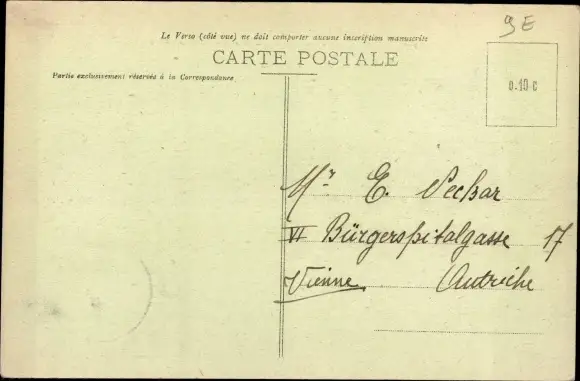 9E
Le Verso (côté vue) ne doit comporter aucune inscription manuscrite
CARTE POSTALE
Partie exclusivement réservée à la Correspondance
0.10 c
Mr E. Peckar
VI Bürgerspitalgasse 17
Vienne. Autriche